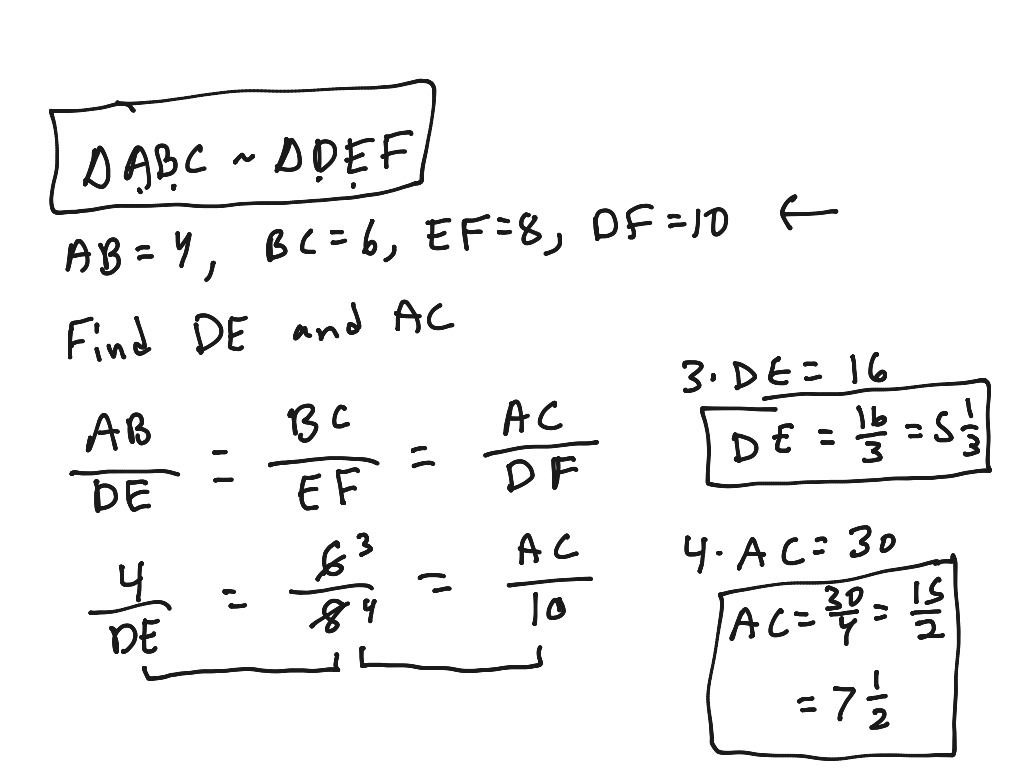 ΔABC ~ ΔDEF
AB = 4, BC = 6, EF = 8, DF = 10 ←
Find DE and AC
AB/DE = BC/EF = AC/DF
4/DE = 6 3/8 4 = AC/10
3 · DE = 16
DE = 16/3 = 5 1/3
4 · AC = 30
AC = 30/4 = 15/2
= 7 1/2